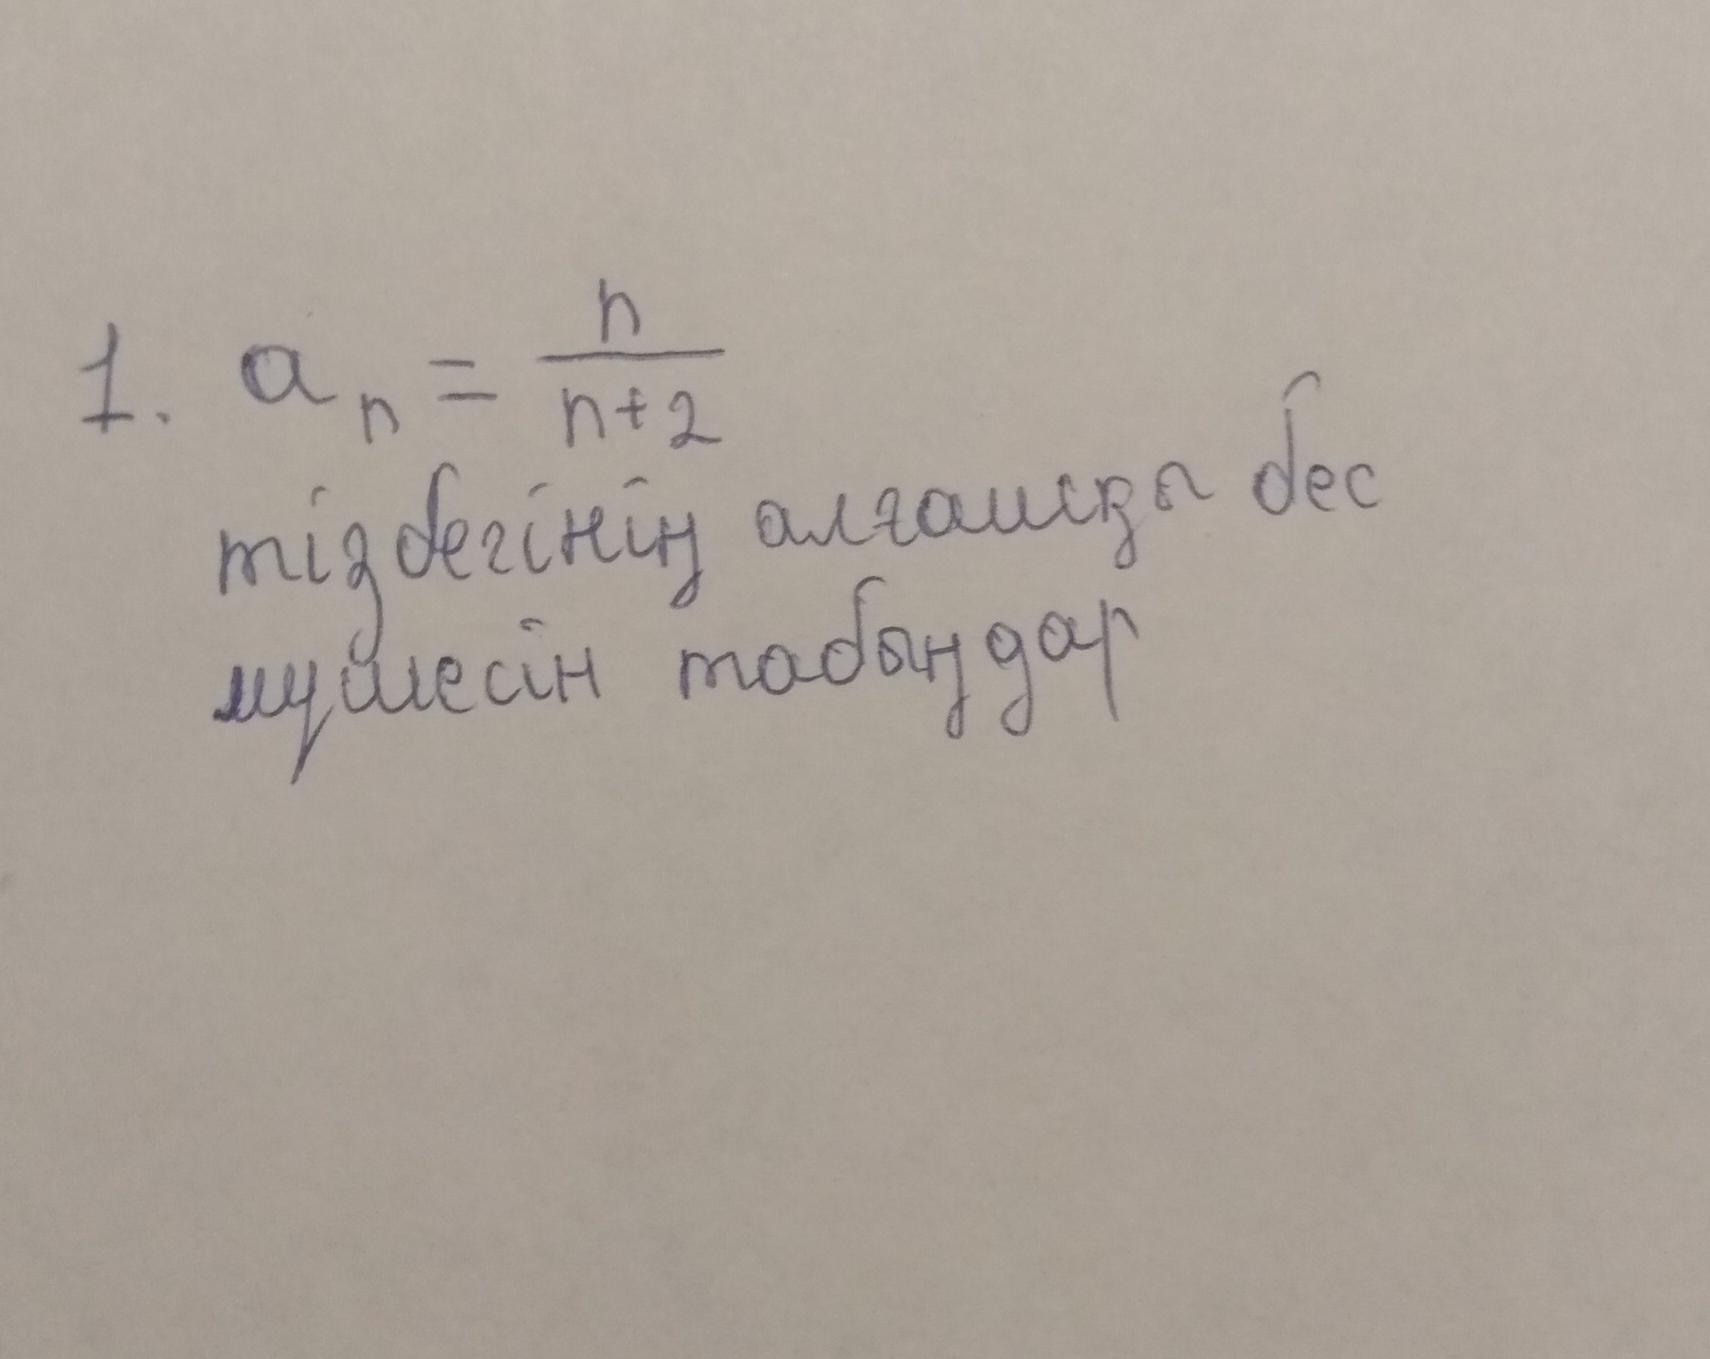 1. aₙ = n/(n+2)
тізбегінің алғашқы бес
мүшесін табыңдар